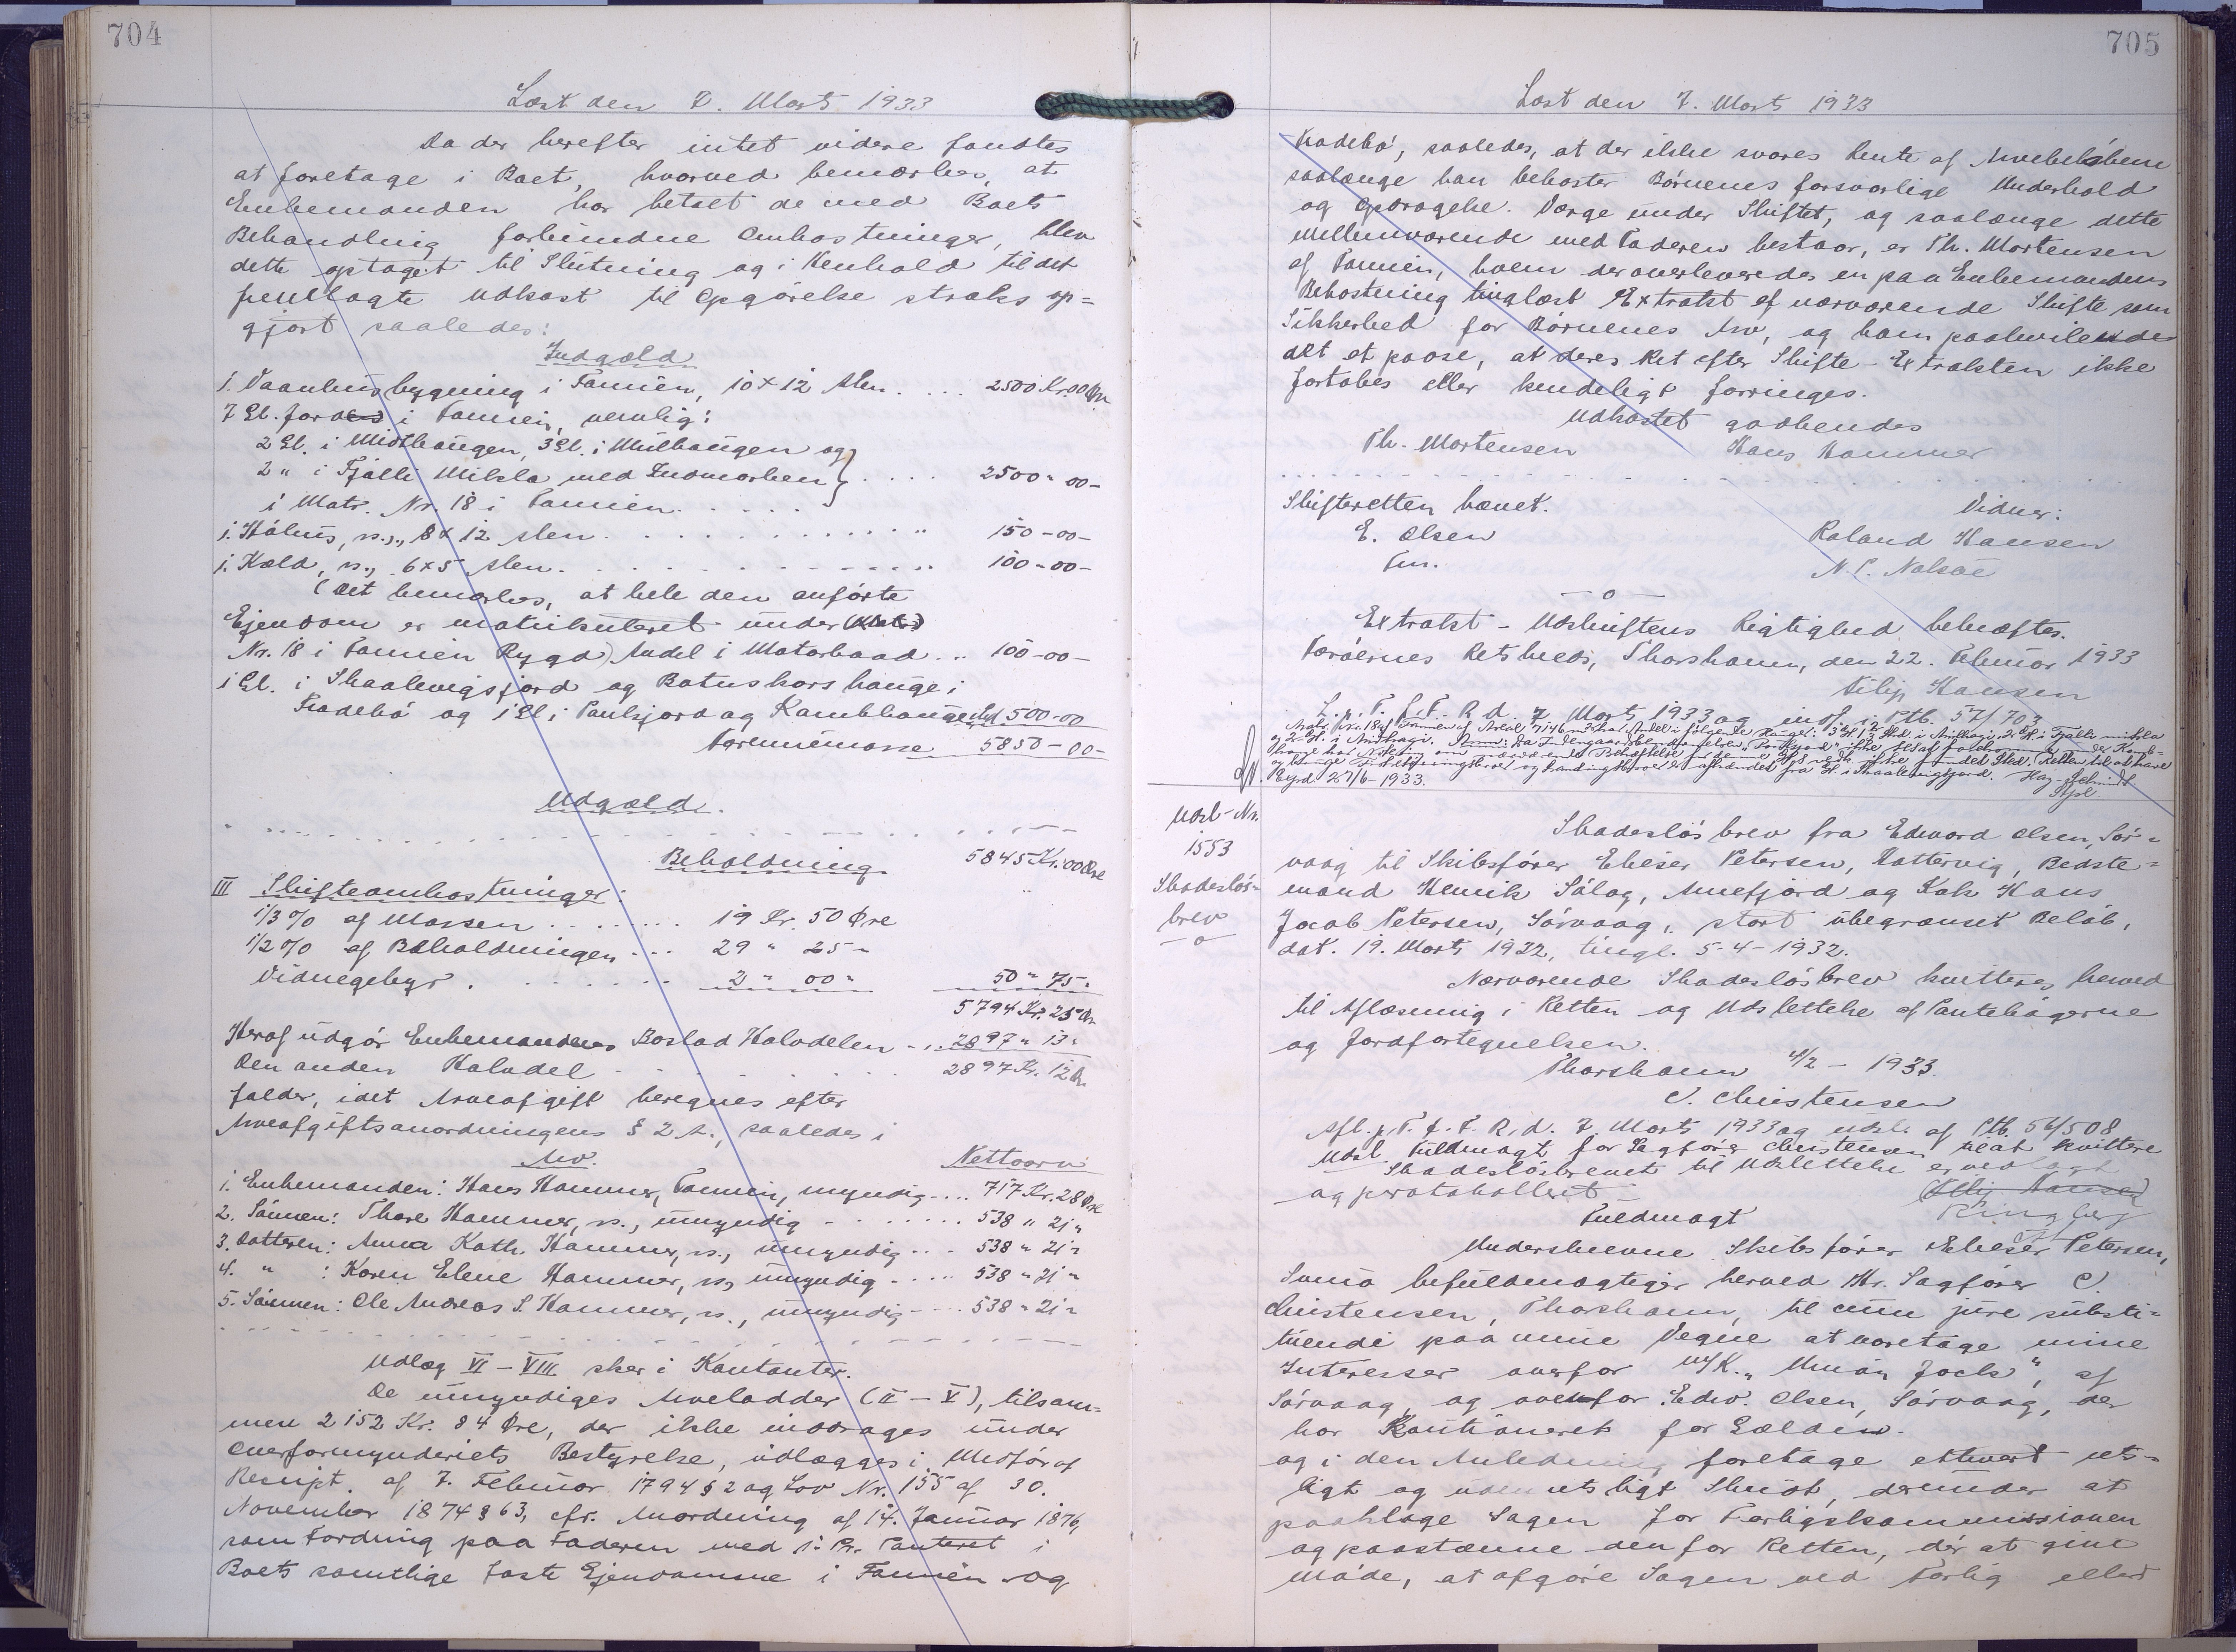 704
Læst den 7. Marts 1933
Da der herefter intet videre fandtes
at foretage i Boet, hvorved bemærkes, at
Enkemanden har betalt de med Boets
Behandling forbundne Omkostninger, blev
dette optaget til Slutning og i Henhold til det
fremlagte Udkast til Opgörelse straks op=
gjort saaledes:
Indgæld
1. Vaanhusbygning i Famién, 10 x 12 Alen .... 2500 Kr. 00 Øre
7 Gl. Jord i Famien, nemlig:
2 Gl. i Midthaugen, 3 Gl. i Mulhaugen og
2 " i Fjalli Mikla med Indmarken .... 2500 " 00 -
i Matr. Nr. 18 i Famien .....
1. Hölius, rs., 8 x 12 Alen ........... 150 - 00 -
1. Kæld, rs., 6 x 5 Alen ............ 100 - 00 -
(Det bemærkes, at hele den anförte
Ejendom er matrikuleret under
Nr. 18 i Famien Bygd) Andel i Motorbaad .. 100 - 00 -
1 Gl. i Skaalevigsfjord og Botnskors hauge i
Tradebö og 1 Gl. i Punsfjord og Kambhauge 500 - 00
Formuemasse 5850 - 00 -
Udgæld.
Beholdning 5845 Kr. 00 Øre
III Skifteomkostninger:
1/3 % af Massen ........ 19 Kr. 50 Øre
1/2 % af Beholdningen ... 29 " 25 "
Vidnegebyr ........ 2 " 00 " 50 " 75 "
5794 Kr. 25 Øre
Heraf udgör Enkemandens Boslod Halvdelen ... 2897 " 13 "
Den anden Halvdel ........ 2897 Kr. 12 Ø.
falder, idet Arveafgift beregnes efter
Arveafgiftsanordningens § 2 A., saaledes i
Arv. Nettoarv
1. Enkemanden: Hans Hammer, Famien, myndig .... 717 Kr. 28 Øre
2. Sönnen: Thore Hammer, rs., umyndig ....... 538 " 21 "
3. Datteren: Anna Kath. Hammer, rs., umyndig ... 538 " 21 "
4. " : Karen Elene Hammer, rs., umyndig ..... 538 " 21 "
5. Sönnen: Ole Andreas S. Hammer, rs., umyndig ... 538 " 21 "
Udlæg VI - VIII sker i Kontanter.
De umyndiges Arvelodder (II - V), tilsam=
men 2152 Kr. 84 Øre, der ikke inddrages under
Overformynderiets Bestyrelse, udlægges i Medför af
Rescript. af 7. Februar 1794 § 2 og Lov Nr. 155 af 30.
November 1874 § 63, cfr. Anordning af 14. Januar 1876,
som Fordring paa Faderen med 1. Pr. Panteret i
Boets samtlige faste Ejendomme i Famién og
705
Læst den 7. Marts 1933
Tradebö, saaledes, at der ikke svares Rente af Arvebelöbene
saalænge han bekoster Börnenes forsvarlige Underhold
og Opdragelse. Værge under Skiftet, og saalænge dette
Mellemværende med Faderen bestaar, er Th. Mortensen
af Famien, hvem der overleveredes en paa Enkemandens
Bekostning tinglæst Extrakt af nærværende Skifte som
Sikkerhed for Börnenes Arv, og ham paahvilende
det et paase, at deres Ret efter Skifte-Extrakten ikke
fortabes eller kendeligt forringes.
Udkastet godkendes
Th. Mortensen Hans Hammer
Skifteretten hævet.
Vidner:
E. Olsen Roland Hansen
Fm. N. P. Nolsøe
- o -
Extrakt-Udskriftens Rigtighed bekræftes.
Færöernes Retskreds, Thorshavn, den 22. Februar 1933
Filip Hansen
L. p. T. f. F. R. d. 7. Marts 1933 og indf. i Ptb. 57/703
Stjl
Udsl-Nr.
1553
Skadeslös-
brev
- o -
Skadeslösbrev fra Edward Olsen, Sör=
vaag til Skibsförer Elieser Petersen, Hattervig, Bedste=
mand Henrik Sólag, Annefjord og Kok Hans
Jacob Petersen, Sörvaag, stort ubegrænset Belöb,
dat. 19. Marts 1932, tingl. 5-4-1932.
Nærværende Skadeslösbrev kvitteres herved
til Aflæsning i Retten og Udslettelse af Pantebögerne
og Jordfortegnelsen.
Thorshavn 4/2 - 1933.
C. Christensen
Afl. p. T. f. F. R. d. 7. Marts 1933 og udsl. af Ptb. 56/508
Udsl. Fuldmagt for Sagförer Christensen til at kvittere
Skadeslösbrevet til Udslettelse er vedlagt
og protokolleret
Fuldmagt
Underskrevne Skibsförer Elieser Petersen,
Svinö befuldmægtiger herved Hr. Sagförer C.
Christensen, Thorshavn, til cum jure substi=
tuendi paa mine Vegne at varetage mine
Interesser overfor M/K. "Union Jack", af
Sörvaag, og overfor Edw. Olsen, Sörvaag, der
har Kautioneret for Gælden.
og i den Anledning foretage ethvert rets=
ligt og udenretsligt Skridt, derunder at
paaklage Sagen for Forligskommissionen
og paastævne den for Retten, dér at give
Möde, at afgöre Sagen ved Forlig eller